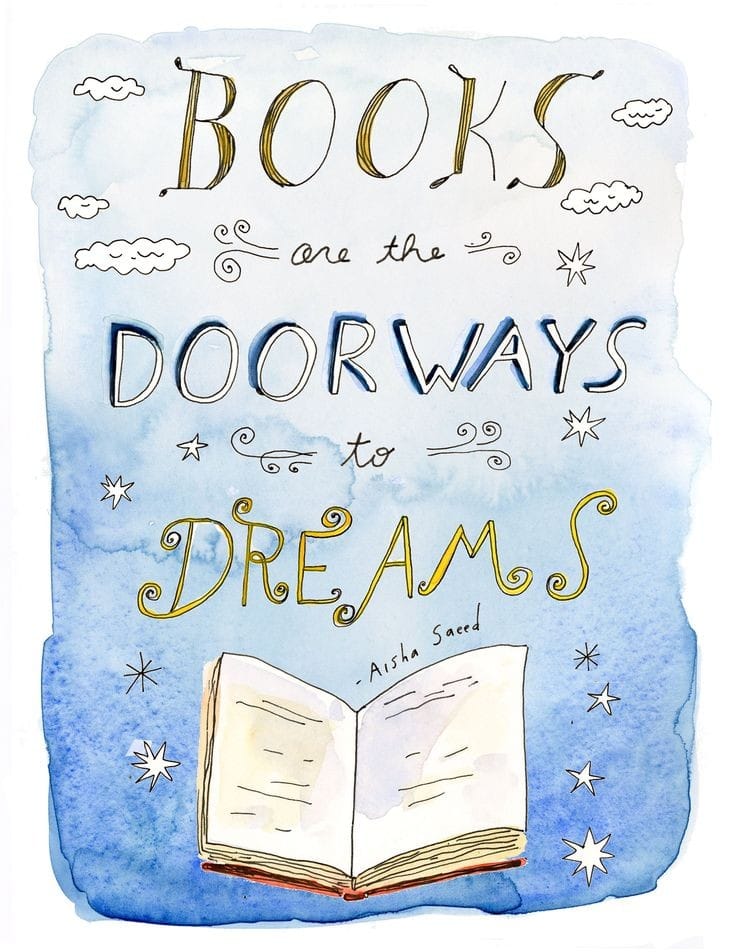 BOOKS
are the
DOORWAYS
to
DREAMS
- Aisha Saeed